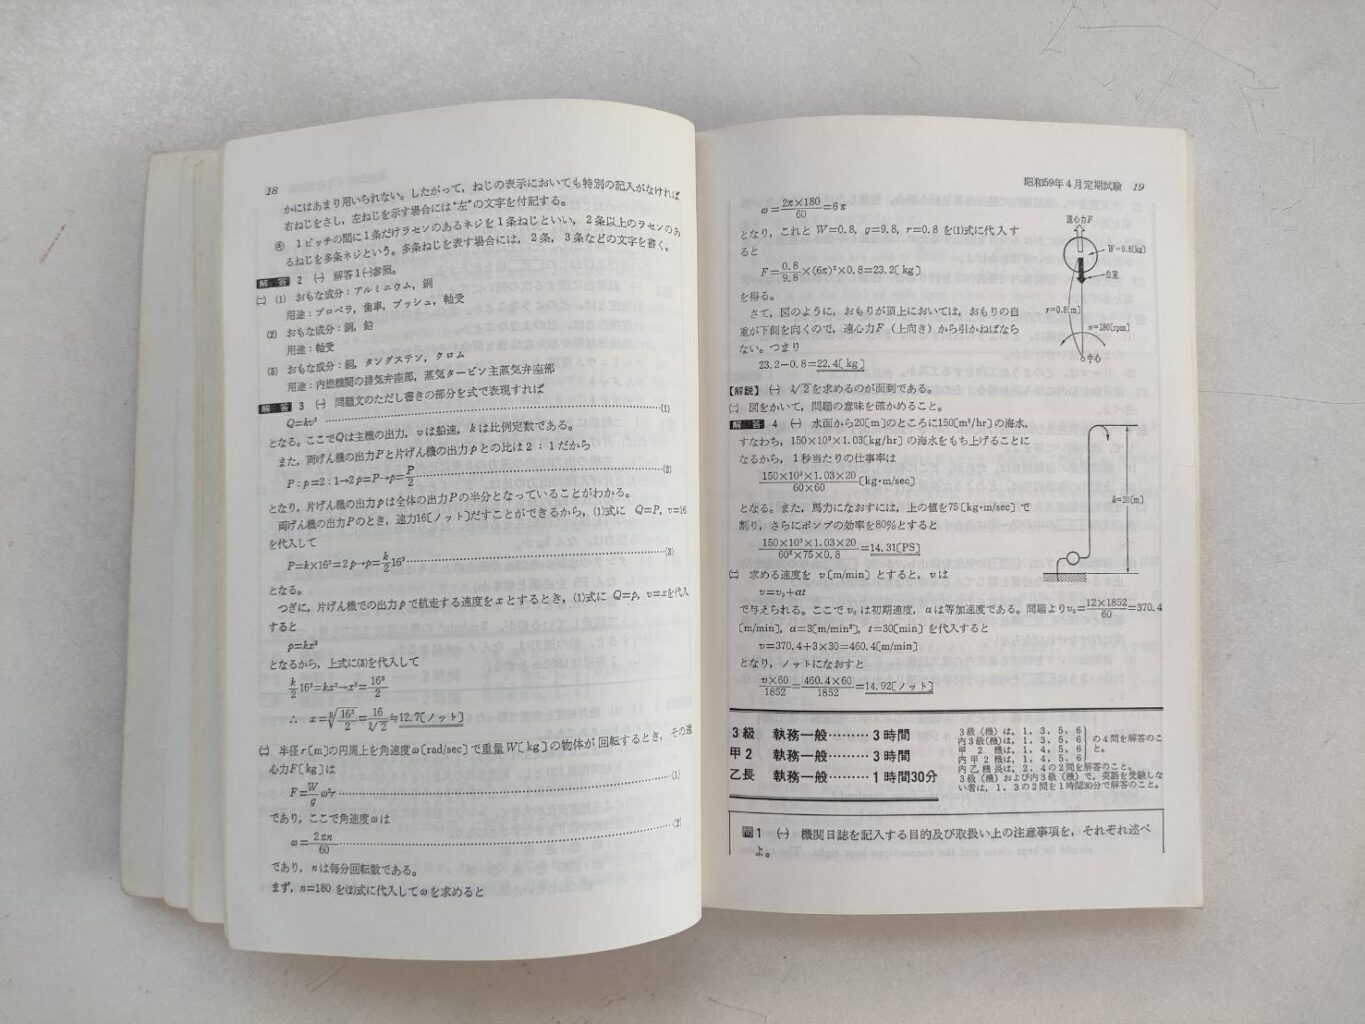 18
かにはあまり用いられない。したがって，ねじの表示においても特別の記入がなければ
右ねじをさし，左ねじを示す場合には“左”の文字を付記する。
㋭ 1ピッチの間に1条だけラセンのあるネジを1条ねじといい，2条以上のラセンのあ
るねじを多条ネジという。多条ねじを表す場合には，2条，3条などの文字を書く。
解答 2 ㈠ 解答1㈠参照。
㈡ (1) おもな成分：アルミニウム，銅
用途：プロペラ，歯車，ブッシュ，軸受
(2) おもな成分：銅，鉛
用途：軸受
(3) おもな成分：銅，タングステン，クロム
用途：内燃機関の排気弁座部，蒸気タービン主蒸気弁座部
解答 3 ㈠ 問題文のただし書きの部分を式で表現すれば
Q=kv³……(1)
となる。ここでQは主機の出力，vは船速，kは比例定数である。
また，両げん機の出力Pと片げん機の出力pとの比は2：1だから
P：p=2：1→2p=P→p=P/2……(2)
となり，片げん機の出力pは全体の出力Pの半分となっていることがわかる。
両げん機の出力Pのとき，速力16〔ノット〕だすことができるから，(1)式に Q=P，v=16
を代入して
P=k×16³=2p→p=k/2 16³……(3)
となる。
つぎに，片げん機での出力pで航走する速度をxとするとき，(1)式に Q=p，v=xを代入
すると
p=kx³
となるから，上式に(3)を代入して
k/2 16³=kx³→x³=16³/2
∴ x=∛(16³/2)=16/∛2≒12.7〔ノット〕
㈡ 半径r〔m〕の円周上を角速度ω〔rad/sec〕で重量W〔kg〕の物体が回転するとき，その遠
心力F〔kg〕は
F=W/g ω²r……(1)
であり，ここで角速度ωは
ω=2πn/60……(2)
であり，nは毎分回転数である。
まず，n=180 を(2)式に代入してωを求めると
昭和59年4月定期試験 19
ω=2π×180/60=6π
となり，これと W=0.8，g=9.8，r=0.8 を(1)式に代入す
ると
F=0.8/9.8×(6π)²×0.8=23.2〔kg〕
を得る。
さて，図のように，おもりが頂上においては，おもりの自
重が下側を向くので，遠心力F（上向き）から引かねばなら
ない。つまり
23.2−0.8=22.4〔kg〕
遠心力F
W=0.8〔kg〕
自重
r=0.8〔m〕
n=180〔rpm〕
中心
【解説】 ㈠ ∛2を求めるのが面到である。
㈡ 図をかいて，問題の意味を確かめること。
解答 4 ㈠ 水面から20〔m〕のところに150〔m³/hr〕の海水，
すなわち，150×10³×1.03〔kg/hr〕の海水をもち上げることに
なるから，1秒当たりの仕事率は
150×10³×1.03×20/60×60〔kg·m/sec〕
となる。また，馬力になおすには，上の値を75〔kg·m/sec〕で
割り，さらにポンプの効率を80%とすると
150×10³×1.03×20/60²×75×0.8=14.31〔PS〕
h=20〔m〕
㈡ 求める速度を v〔m/min〕とすると，vは
v=v₀+αt
で与えられる。ここでv₀は初期速度，αは等加速度である。問題よりv₀=12×1852/60=370.4
〔m/min〕，α=3〔m/min²〕，t=30〔min〕を代入すると
v=370.4+3×30=460.4〔m/min〕
となり，ノットになおすと
v×60/1852=460.4×60/1852=14.92〔ノット〕
3級 執務一般………3時間
甲2 執務一般………3時間
乙長 執務一般………1時間30分
3級（機）は，1，3，5，6
内3級（機）は，1，3，5，6
甲2機は，1，4，5，6
内甲2機は，1，4，5，6
の4問を解答のこと。
内乙機長は，2，4の2問を解答のこと。
3級（機）および内3級（機）で，英語を受験しな
い者は，1，3の2問を1時間30分で解答のこと。
問1 ㈠ 機関日誌を記入する目的及び取扱い上の注意事項を，それぞれ述べ
よ。